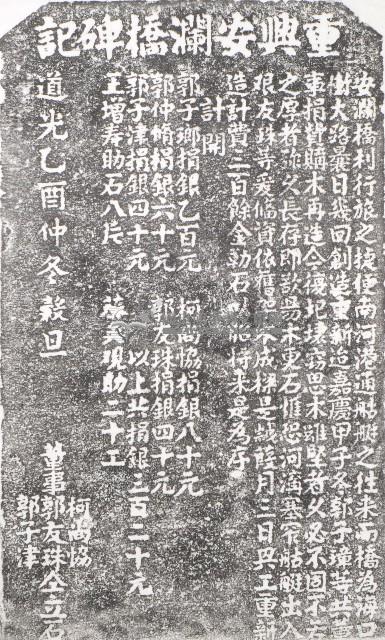 重興安瀾橋碑記
安瀾橋利行旅之捷便南河港通舫艇之往来而橋為海口
大路 日幾回創造重新迨嘉慶甲子冬郭子璋等共董
事捐貲購木再造今復圮壞竊思木雖堅者久必不固不
之厚者弥久長存即欲易木更石惟恐河 窄舫艇出入
艰友珠等爰 資依舊架木成梯是歲 月二日興工重新
造計費二百餘金勒石以 將来是為序
計開
郭子瑯捐銀乙百元 柯尚協捐銀八十元
郭仲 捐銀六十元 郭友珠捐銀四十元
郭子津捐銀四十元 以上共捐銀三百二十元
王增壽助石八片 蔡 現助二十工
道光乙酉仲冬穀旦 董事柯尚協郭友珠郭子津仝立石